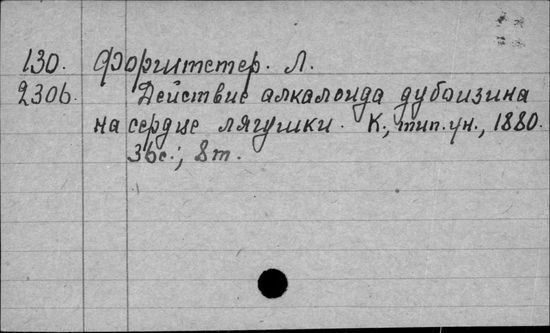 130. Форштетер. Л.
2306. Действие алкалоида дубоизина
на сердце лягушки. К., тип. ун., 1880.
36с.; 8т.